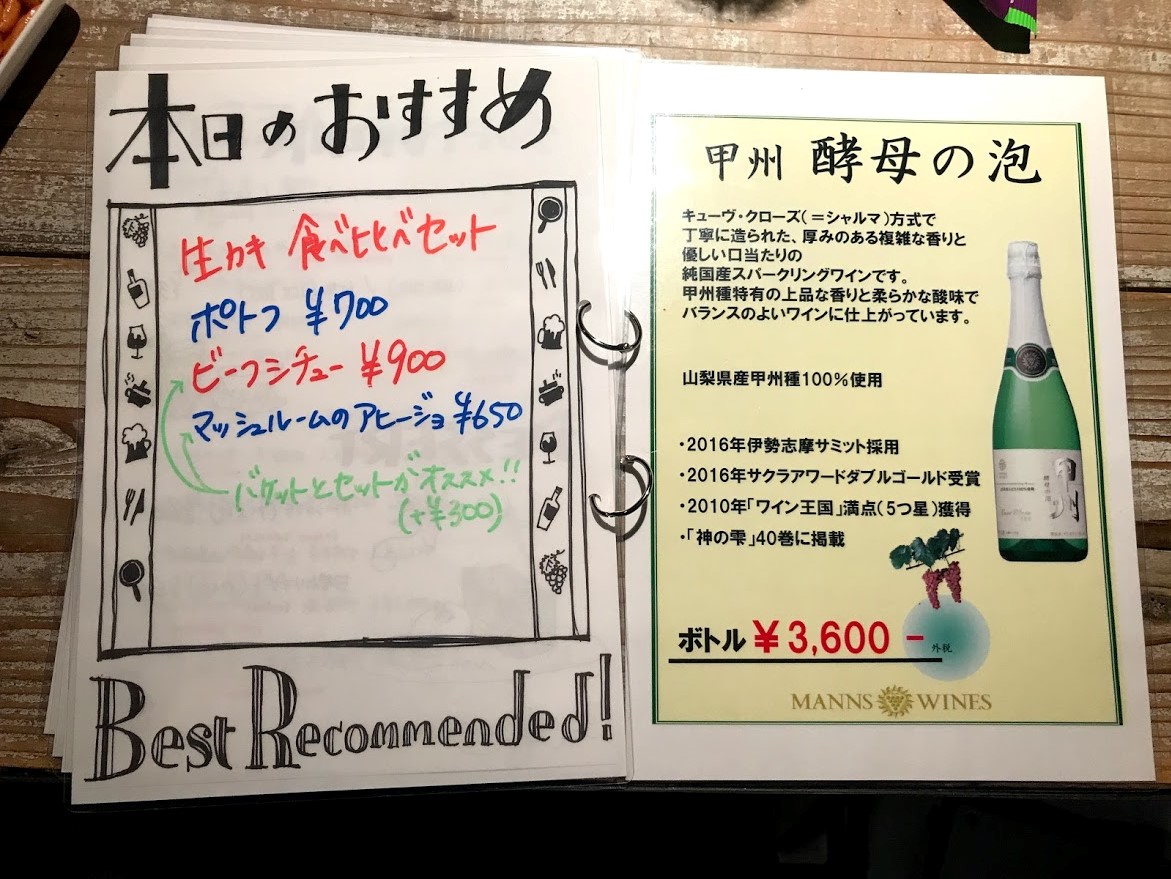 本日のおすすめ
生カキ 食べ比べセット
ポトフ ¥700
ビーフシチュー ¥900
マッシュルームのアヒージョ ¥650
バケットとセットがオススメ!!
(+¥300)
Best Recommended!
甲州 酵母の泡
キューヴ・クローズ(=シャルマ)方式で
丁寧に造られた、厚みのある複雑な香りと
優しい口当たりの
純国産スパークリングワインです。
甲州種特有の上品な香りと柔らかな酸味で
バランスのよいワインに仕上がっています。
山梨県産甲州種100%使用
・2016年伊勢志摩サミット採用
・2016年サクラアワードダブルゴールド受賞
・2010年「ワイン王国」満点(5つ星)獲得
・「神の雫」40巻に掲載
甲州
酵母の泡
ボトル ¥3,600 -
外税
MANNS WINES